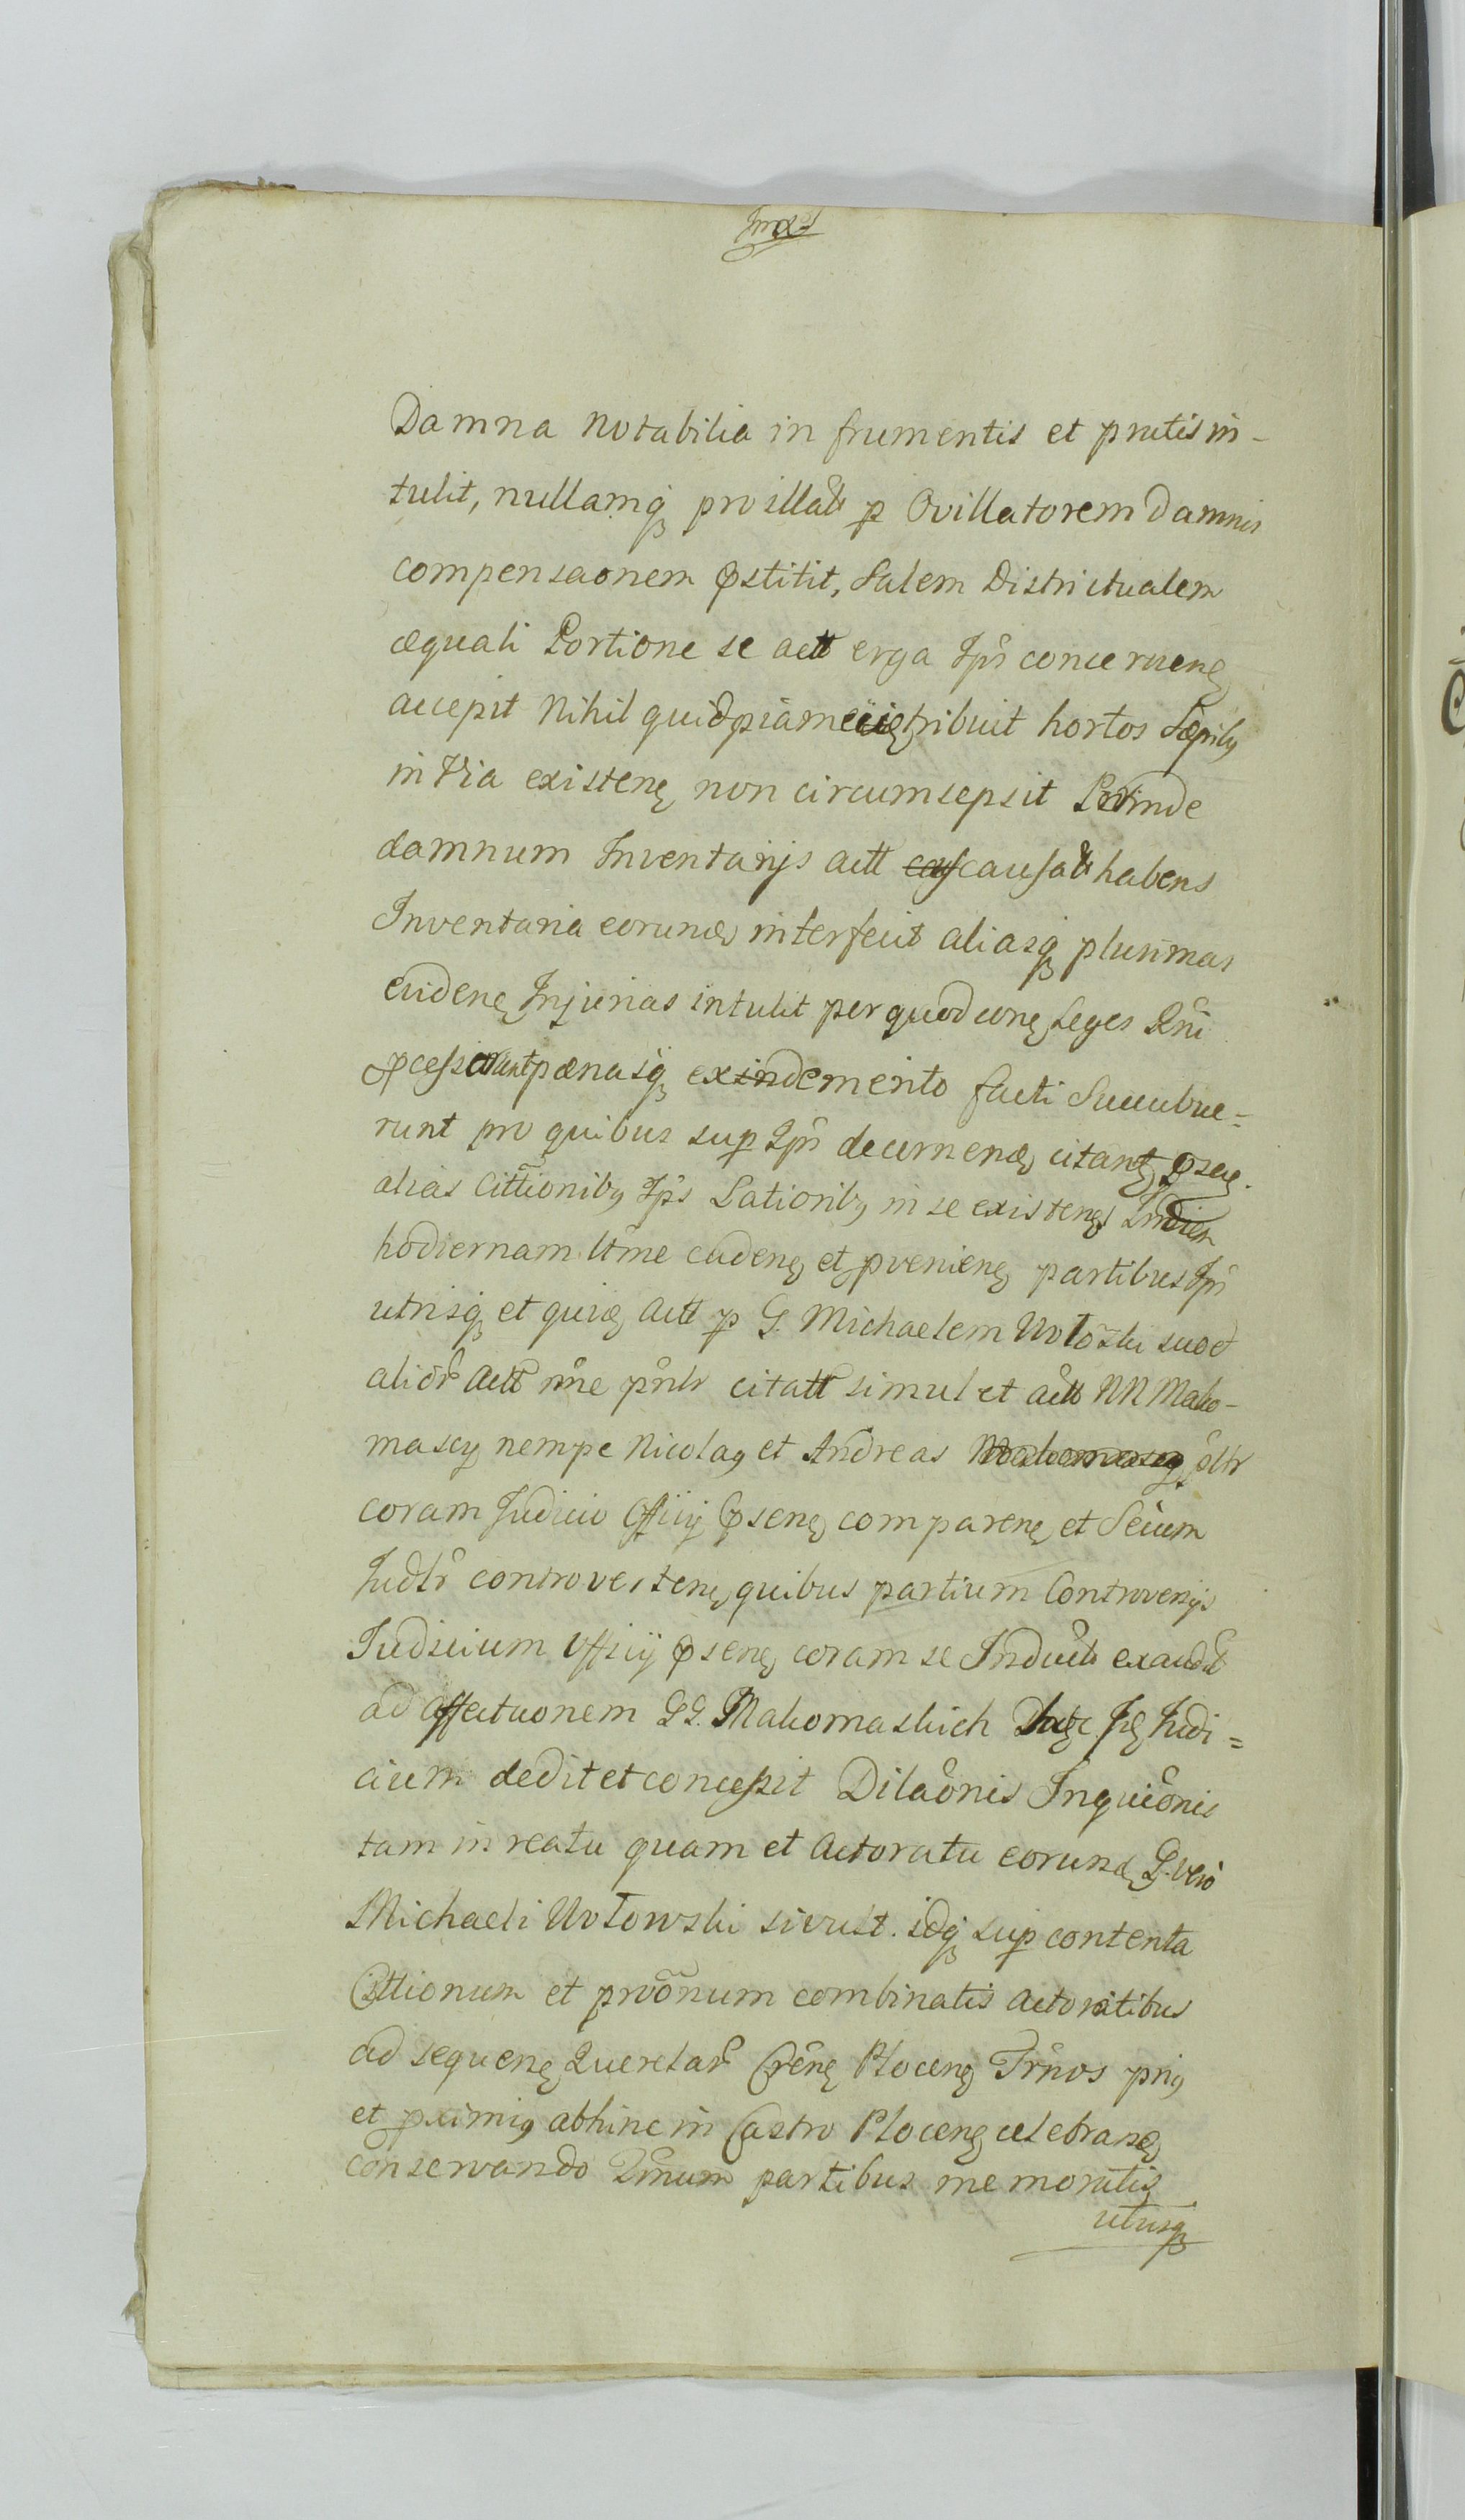 Damna notabilia in frumentis et pratis in-
tulit, nullamq pro illatt p Ovillatorem Damnis
compensaonem pstitit, Salem Districtualem
æquali Portione se actt erga Ips concernenę
accepit Nihil quidpiam eiię tribuit hortos Sæpiby
in Via existenę non circumsepsit Proinde
damnum Inventarijs actt causatt habens
Inventaria eorundę interfecit aliasq plurimas
evidenę Injurias intulit per quod conę Leges Rni
pcesserant pænasq ex demerito facti Succubue=
runt pro quibus sup Ips decernendę citant psenę.
alias Cittioniby Ips Lationiby in se existenę In diem
hodiernam ltme cadenę et pvenienę partibus Ips
utrisq et quidę actt p G. Michaelem Wołoski suo et
alior actt nne pnlr citatt simul et actt NN Mako-
mascy nempe Nicolay et Andreas pltr
coram Judicio Officij psenę comparenę et Secum
Judlr controvertenę quibus partium Controversijs
Judicium Officij psenę coram se Inductt exaudit
ad affectaonem GG. Makomaskich Judi=
cium dedit et concessit Dilaonis Inquionis
tam in reatu quam et Actoratu eorundę G. vero
Michaeli Wołowski si vult. idq sup contenta
Cittionum et proonum combinatis actoratibus
ad sequenę Querelar Crenę Plocenę Trnos priy
et pximiy abhinc in Castro Plocenę celebrandę
conservando Tmnum partibus memoratis
utrisq